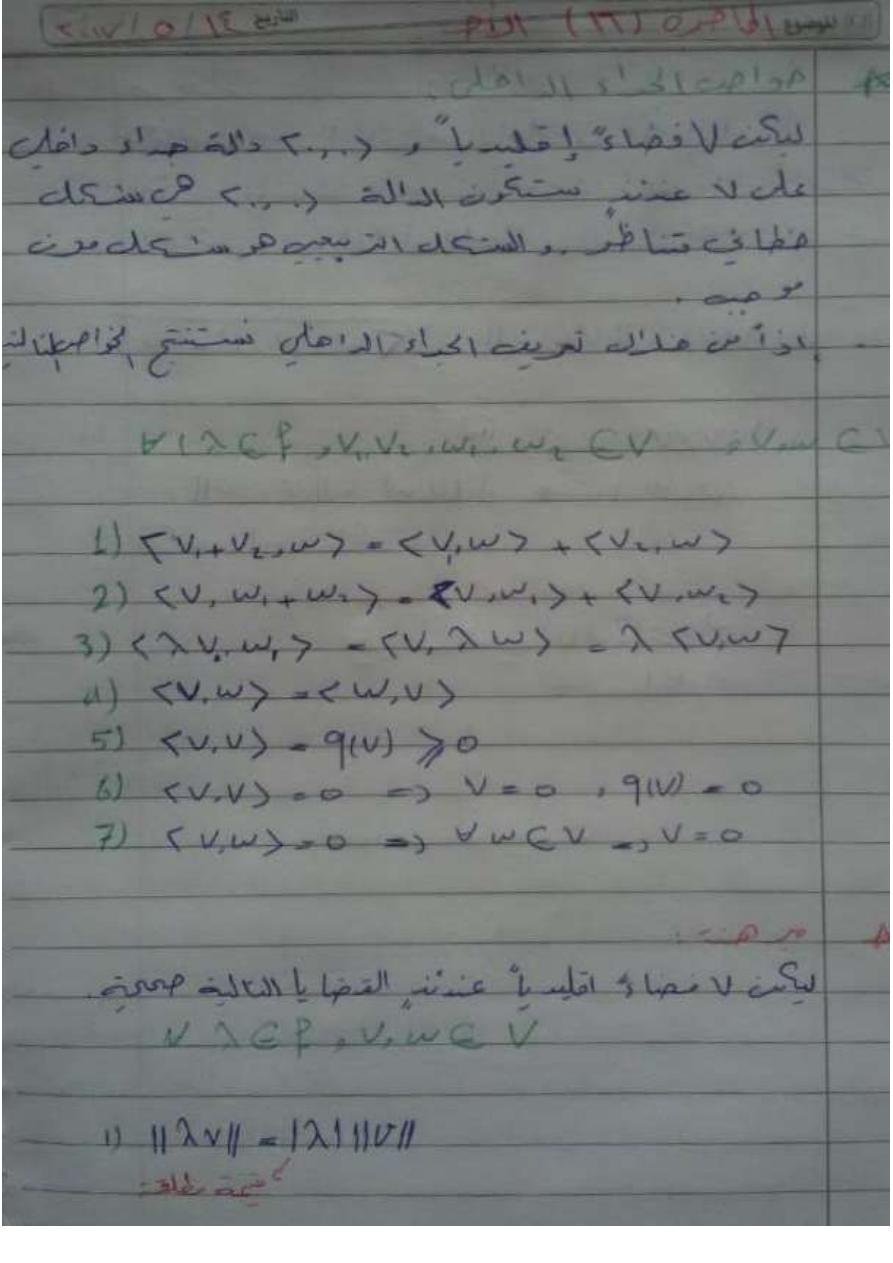 المحاضرة (١٦) الأحد التاريخ ١٤ / ٥ / ٢٠١٧
خواص الجداء الداخلي:
ليكن V فضاءً إقليدياً و <.,.> دالة جداء داخلي
على V عندئذٍ ستكون الدالة <.,.> هي شكل
خطاني متناظر والشكل التربيعي هو شكل
موجب .
إذاً من خلال تعريف الجداء الداخلي نستنتج الخواص التالية
∀ λ ∈ f , V₁, V₂, w₁, w₂ ∈ V , V, w ∈ V
1) <V₁+V₂, w> = <V₁, w> + <V₂, w>
2) <V, w₁+w₂> = <V, w₁> + <V, w₂>
3) <λV, w> = <V, λw> = λ <V, w>
4) <V, w> = <w, V>
5) <V, V> = q(V) ⩾ 0
6) <V, V> = 0 => V = 0 , q(V) = 0
7) <V, w> = 0 => ∀ w ∈ V => V = 0
مبرهنة:
ليكن V فضاءً اقليدياً عندئذٍ القضايا التالية صحيحة.
∀ λ ∈ f , V, w ∈ V
1) ||λV|| = |λ| ||V||
قيمة مطلقة